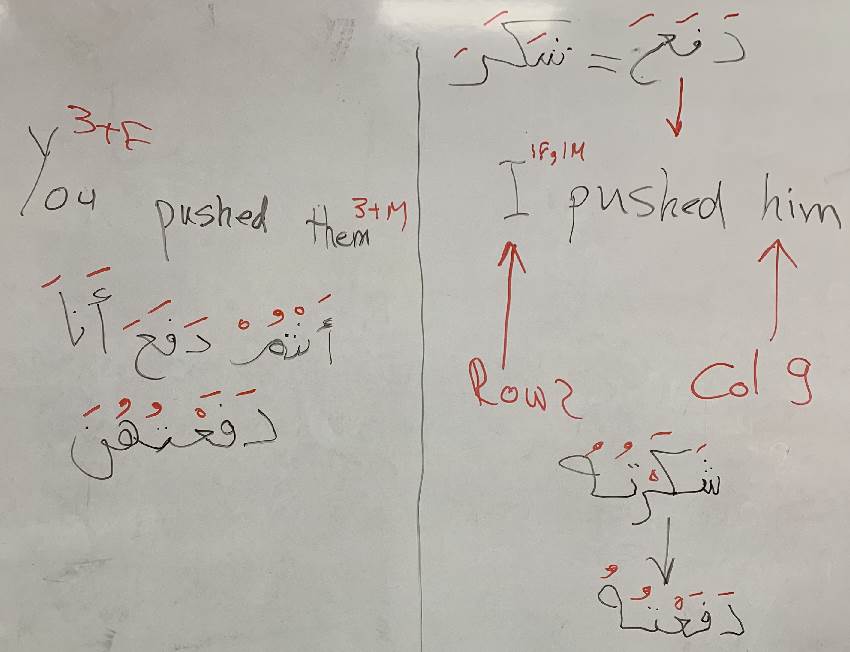 You 3+F pushed them 3+M
أَنْتُمْ دَفَعَ أَنَا
دَفَعْتُهُنَ
دَفَعَ = شَكَرَ
I 1F,1M pushed him
Row 2 Col 9
شَكَرْتُهُ
دَفَعْتُهُ